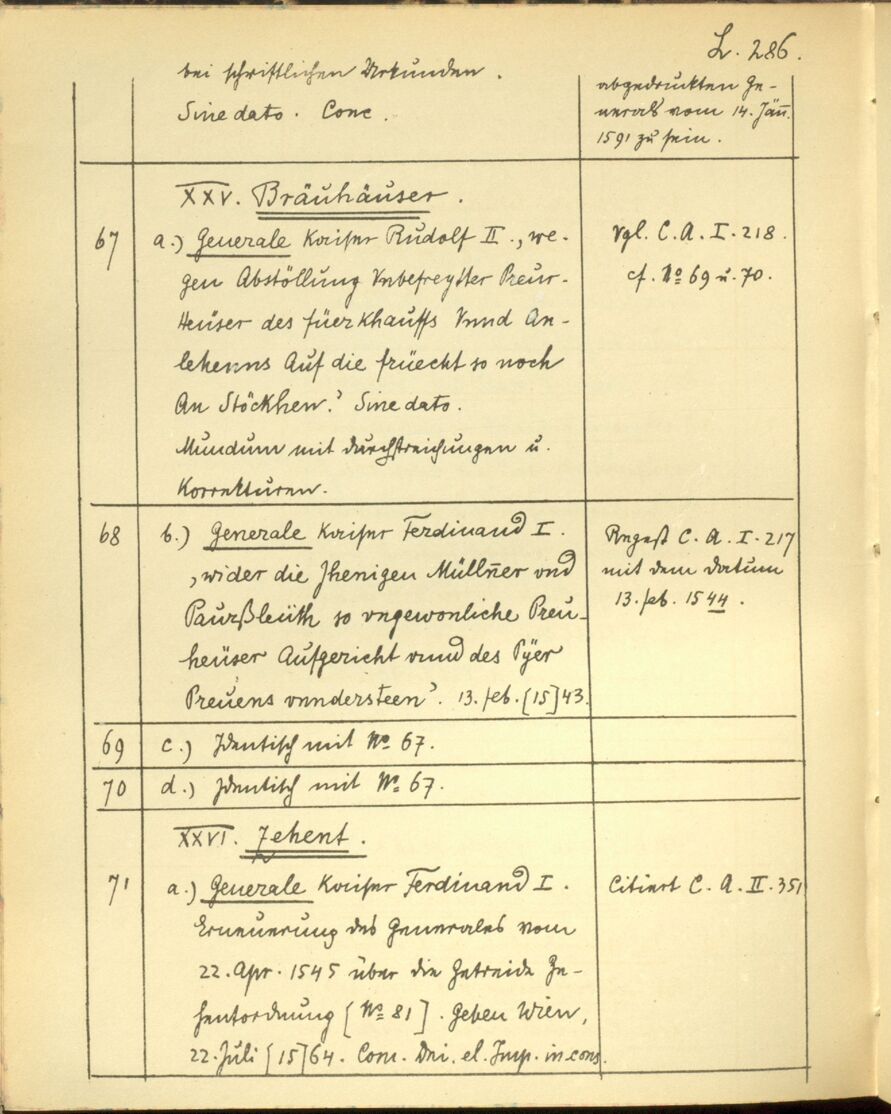 L. 286.
bei schriftlichen Urkunden.
Sine dato. Conc.
abgedruckten Ge-
nerals vom 14. Jän̄.
1591 zu sein.
XXV. Bräuhäuser.
67
a.) Generale Kaiser Rudolf II. ‚we-
gen Abstöllung Vnbefreyster Preur-
Heüser des füerkhauffs Vnnd An-
lehenns Auf die früecht so noch
An Stöckhen.‘ Sine dato.
Mundum mit Durchstreichungen u.
Korrekturen.
Vgl. C. A. I. 218.
cf. No 69 u. 70.
68
b.) Generale Kaiser Ferdinand I.
‚wider die Jhenigen Müllner vnd
Paurßleüth so vngewonliche Preu-
heüser Aufgericht vnnd des Pÿer
Preuens vnndersteen‘. 13. Feb. [15]43.
Regest C. A. I. 217
mit dem Datum
13. Feb. 1544.
69
c.) Identisch mit No 67.
70
d.) Identisch mit No 67.
XXVI. Zehent.
71
a.) Generale Kaiser Ferdinand I.
Erneuerung des Generales vom
22. Apr. 1545 über die Getreide Ze-
hentordnung [No 81]. Geben Wien,
22. Juli [15]64. Com. Dni. el. Imp. in cons.
Citiert C. A. II. 351